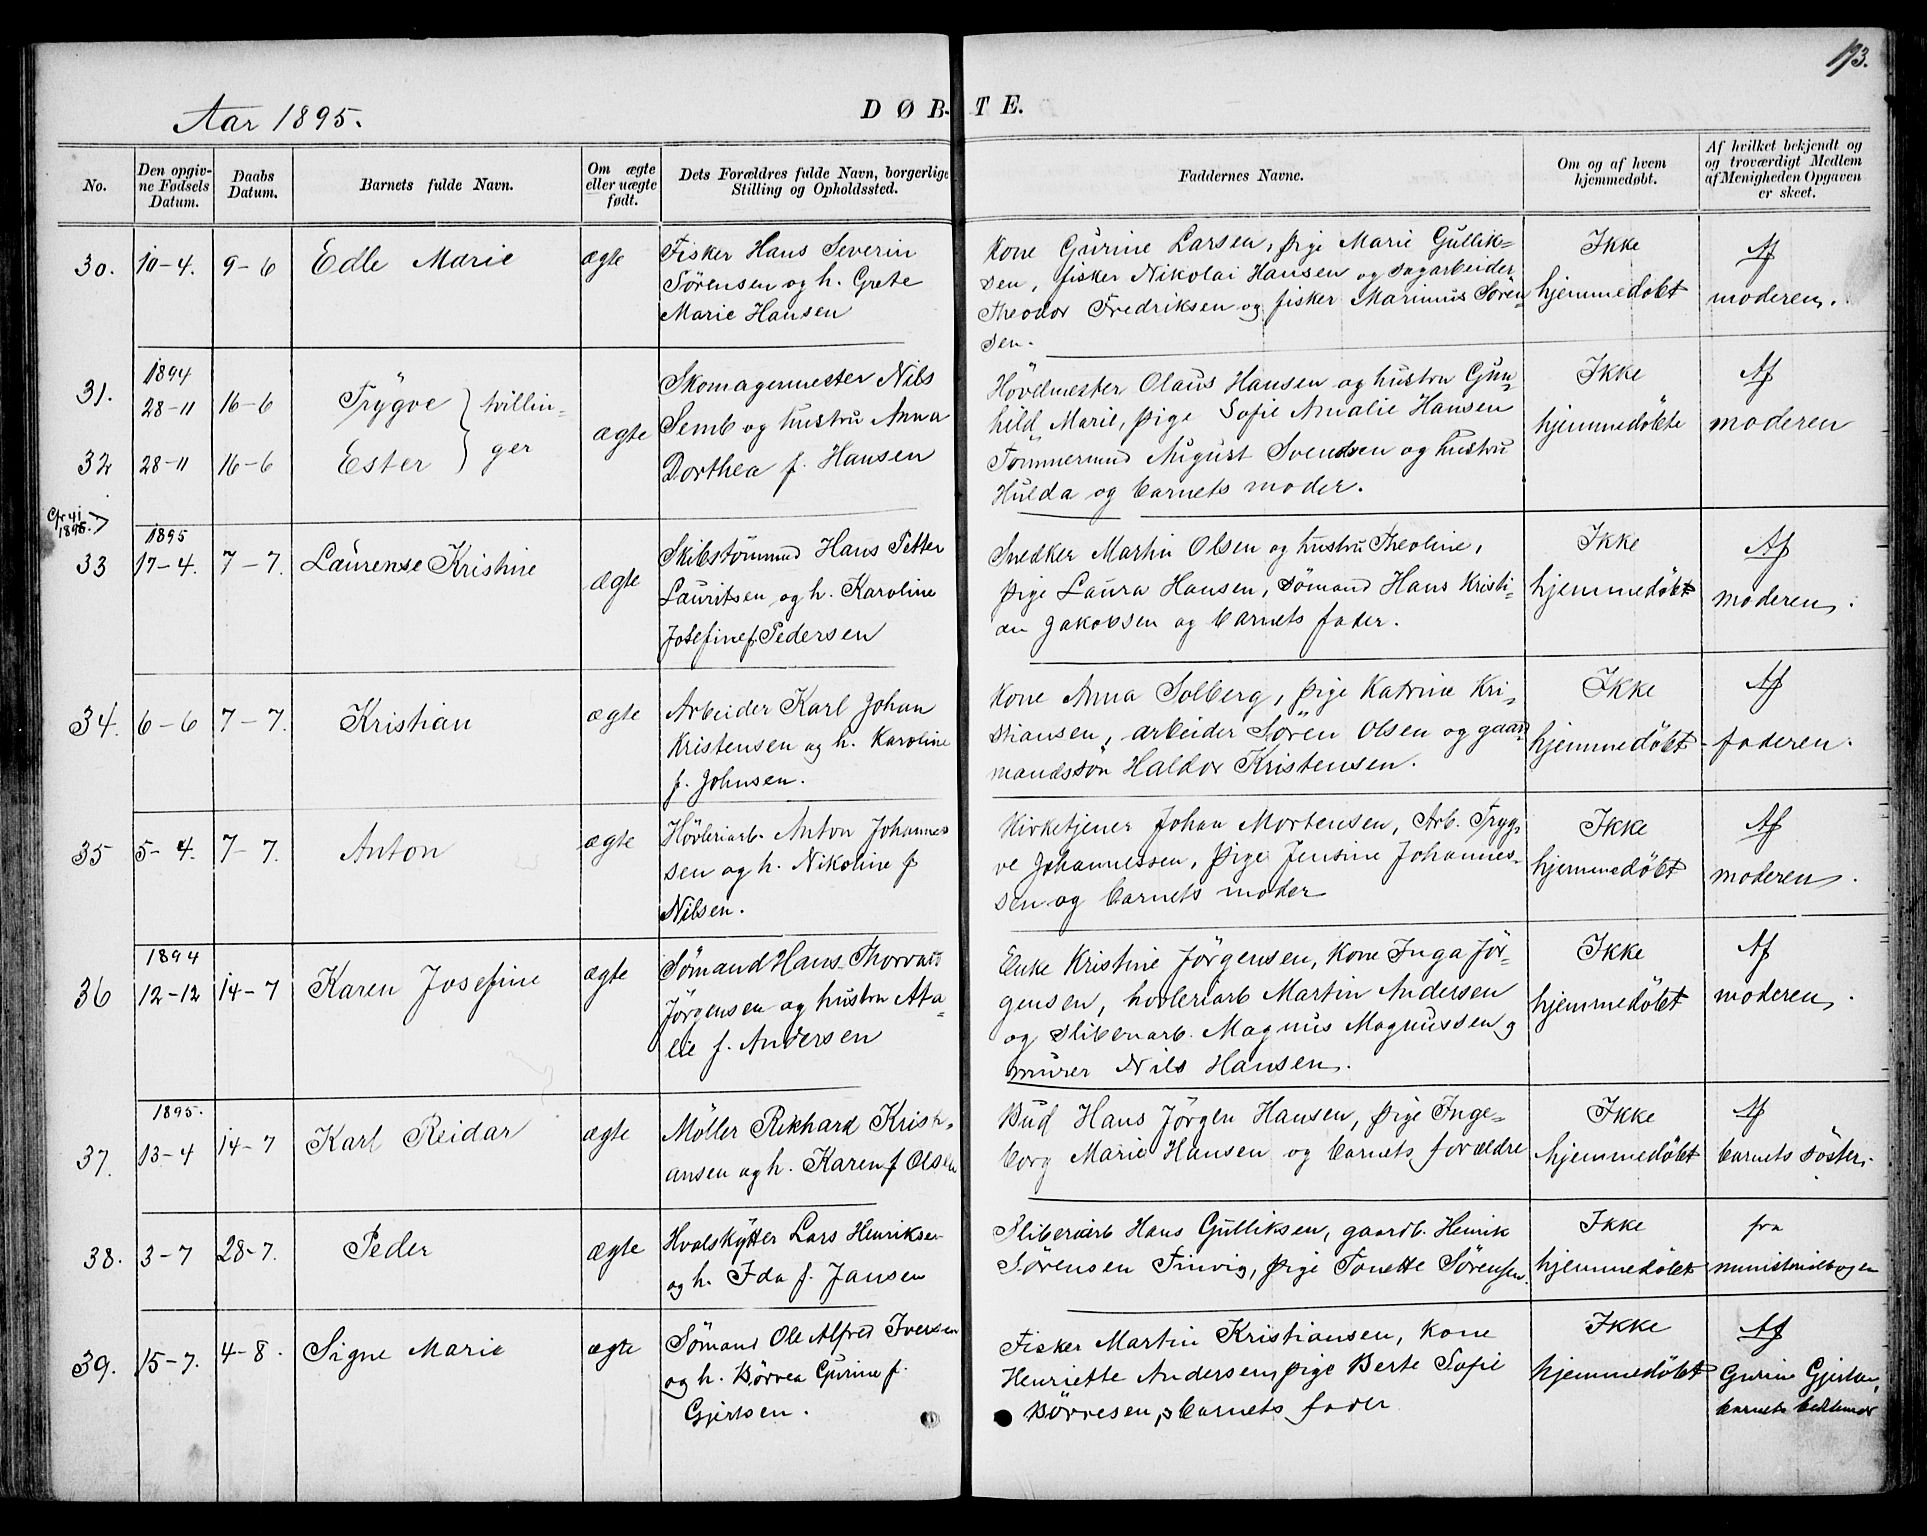 193.
Aar 1895.
DØBTE.
No.
Den opgiv-
ne Fødsels
Datum.
Daabs
Datum.
Barnets fulde Navn.
Om ægte
eller uægte
født.
Dets Forældres fulde Navn, borgerlige
Stilling og Opholdssted.
Faddernes Navne.
Om og af hvem
hjemmedøbt.
Af hvilket bekjendt og
og troværdigt Medlem
af Menigheden Opgaven
er skeet.
30. 10-4. 9-6 Edle Marie ægte
Fisker Hans Severin
Sörensen og h. Grete
Marie Hansen
Kone Gurine Larsen, Pige Marie Gullik-
sen, fisker Nikolai Hansen og sagarbeider
Theodor Fredriksen og fisker Marinius Sören-
sen.
Ikke
hjemmedøbt
Af
moderen.
31. 1894
28-11 16-6 Trygve } tvillin-
32 28-11 16-6 Ester } ger
ægte
Skomagermester Nils
Semb og hustru Anna
Dorthea f. Hansen
Hövelmester Olaus Hansen og hustru Gun-
hild Marie, Pige Sofie Amalie Hansen
Tömmermd August Svendsen og hustru
Hulda og barnets moder.
Ikke
hjemmedøbte
Af
moderen
1895
33 17-4. 7-7. Laurense Kristine ægte
Skibstömmmd Hans Petter
Lauritsen og h. Karoline
Josefine f. Pedersen
Snedker Martin Olsen og hustru Theoline,
Pige Laura Hansen, Sömand Hans Kristi-
an Jakobsen og barnets fader.
Ikke
hjemmedøbt
Af
moderen.
34. 6-6 7-7. Kristian ægte
Arbeider Karl Johan
Kristensen og h. Karoline
f. Johnsen.
Kone Anna Solberg, Pige Katrine Kri-
stiansen, arbeider Sören Olsen og gaard-
mandssön Haldor Kristensen.
Ikke
hjemmedøbt
Af
faderen.
35 5-4. 7-7. Anton ægte
Hövleriarb. Anton Johannes
sen og h. Nikoline f
Nilsen.
Kirketjener Johan Mortensen, Arb. Tryg-
ve Johannessen, Pige Jensine Johannes-
sen og barnets moder
Ikke
hjemmedøbt
Af
moderen.
1894
36 12-12 14-7 Karen Josefine ægte
Sömand Hans Thorvald
Jörgensen og hustru Ata-
lie f. Andersen
Enke Kristine Jörgensen, Kone Inga Jör-
gensen, hövleriarb Martin Andersen
og Sliberiarb. Magnus Magnussen og
murer Nils Hansen.
Ikke
hjemmedøbt
Af
moderen.
1895.
37. 13-4 14-7 Karl Reidar ægte
Möller Rikhard Kristi-
ansen og h. Karen f Olsen
Bud Hans Jörgen Hansen, Pige Inge-
borg Marie Hansen og barnets forældre
Ikke
hjemmedøbt
Af
barnets söster.
38. 3-7 28-7. Peder ægte
Hvalskytter Lars Henriksen
og h. Ida f. Jansen
Sliberiarb Hans Gulliksen, gaardb. Henrik
Sörensen Finvig, Pige Tonette Sörensen.
Ikke
hjemmedøbt
fra
ministerialbogen
39. 15-7. 4-8. Signe Marie ægte
Sömand Ole Alfred Iversen
og h. Börvea Gurine f.
Gjertsen.
Fisker Martin Kristiansen, Kone
Henriette Andersen, Pige Berte Sofie
Börresen, & barnets fader
Ikke
hjemmedøbt
Af
Gurine Gjertsen,
barnets bestemor